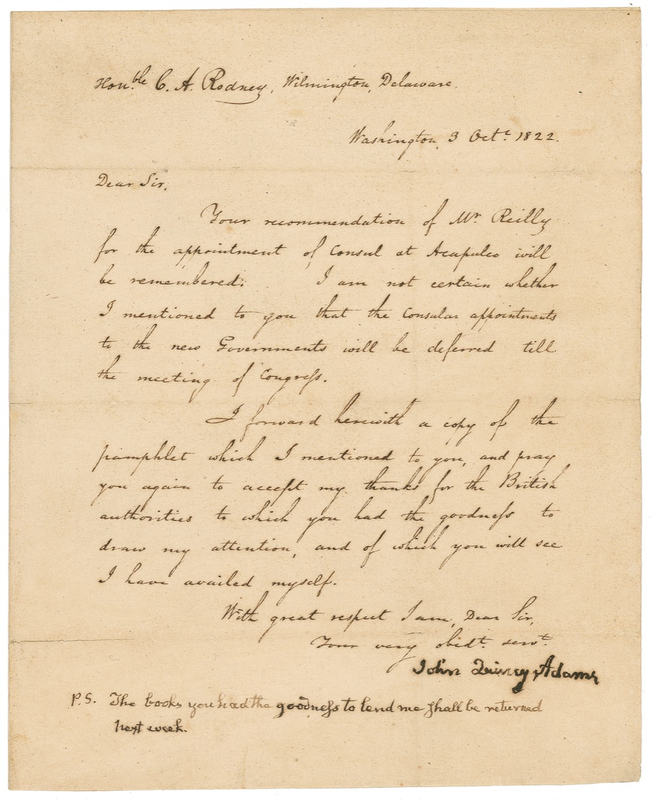 Hon.ble C. A. Rodney, Wilmington, Delaware.
Washington, 3 Octr. 1822.
Dear Sir.
Your recommendation of Mr. Reilly
for the appointment of Consul at Acapulco will
be remembered: I am not certain whether
I mentioned to you that the Consular appointments
to the new Governments will be deferred till
the meeting of Congress.
I forward herewith a copy of the
pamphlet which I mentioned to you, and pray
you again to accept my thanks for the British
authorities to which you had the goodness to
draw my attention, and of which you will see
I have availed myself.
With great respect I am, Dear Sir,
Your very obedt. servt.
John Quincy Adams
P.S. The books you had the goodness to lend me shall be returned
next week.